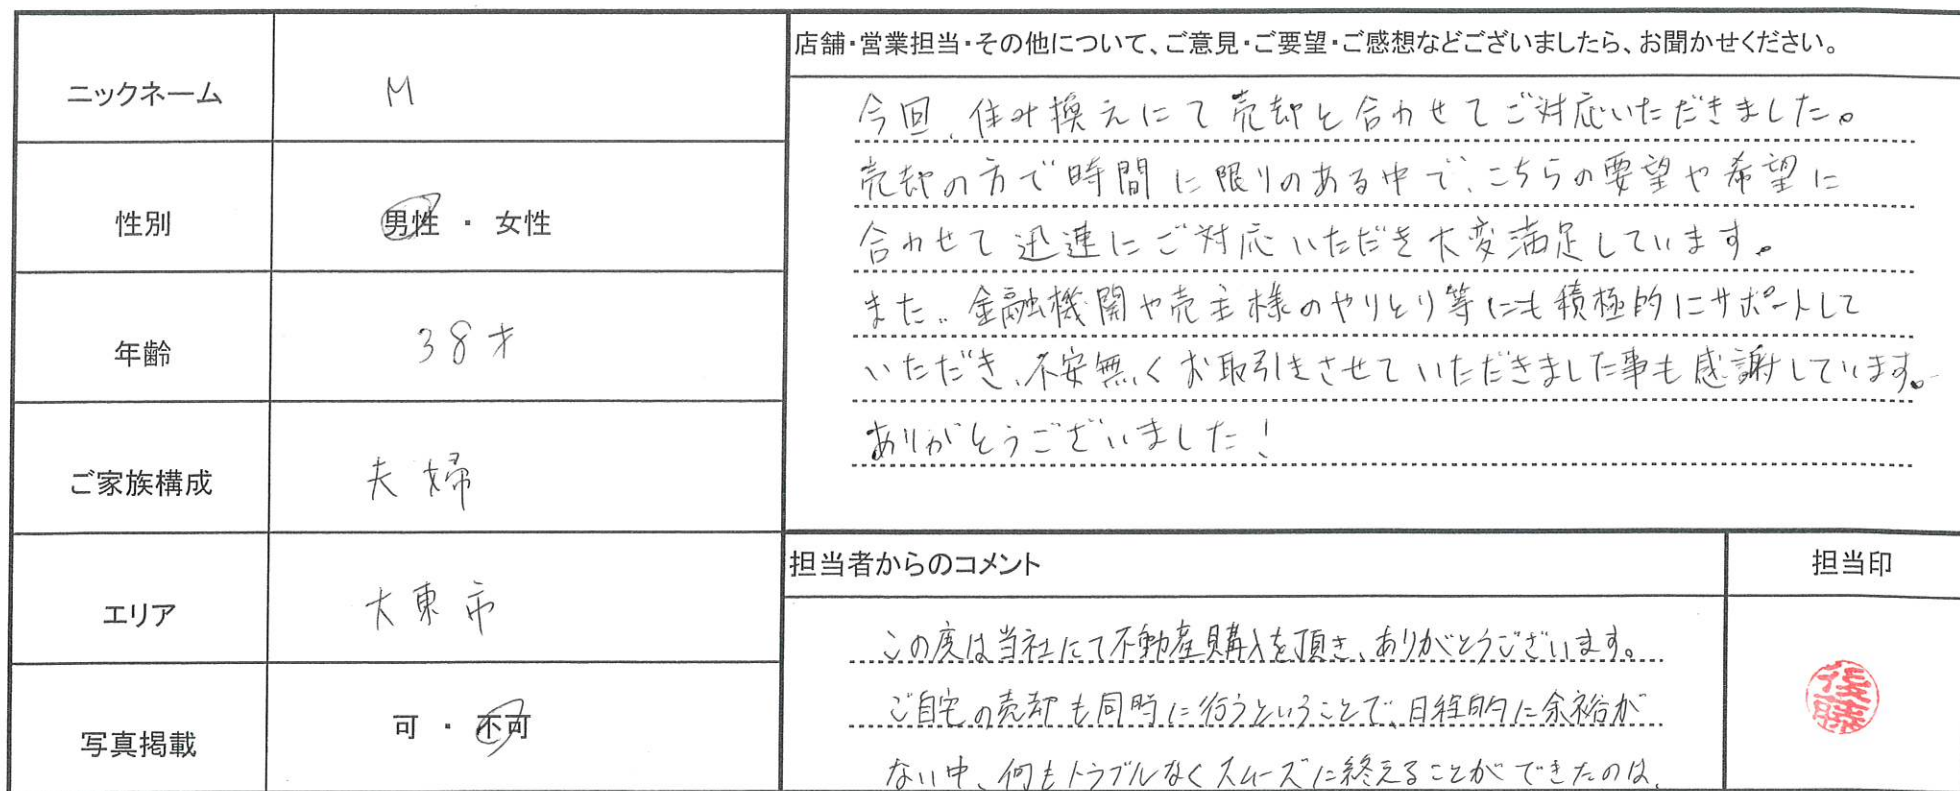 ニックネーム
M
性別
男性 ・ 女性
年齢
38才
ご家族構成
夫婦
エリア
大東市
写真掲載
可 ・ 不可
店舗・営業担当・その他について、ご意見・ご要望・ご感想などございましたら、お聞かせください。
今回、住み換えにて売却と合わせてご対応いただきました。
売却の方で時間に限りのある中で、こちらの要望や希望に
合わせて迅速にご対応いただき大変満足しています。
また、金融機関や売主様のやりとり等にも積極的にサポートして
いただき、不安無くお取引きさせていただきました事も感謝しています。
ありがとうございました!
担当者からのコメント
この度は当社にて不動産購入を頂き、ありがとうございます。
ご自宅の売却も同時に行うということで、日程的に余裕が
ない中、何もトラブルなくスムーズに終えることができたのは、
担当印
後藤